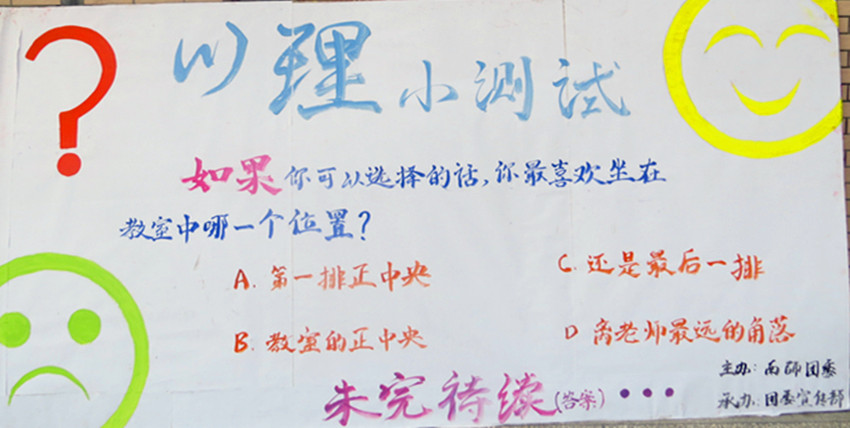 心理小测试
如果你可以选择的话,你最喜欢坐在
教室中哪一个位置?
A. 第一排正中央
C. 还是最后一排
B. 教室的正中央
D 离老师最远的角落
未完待续(答案)•••
主办: 团委
承办: 团委宣传部